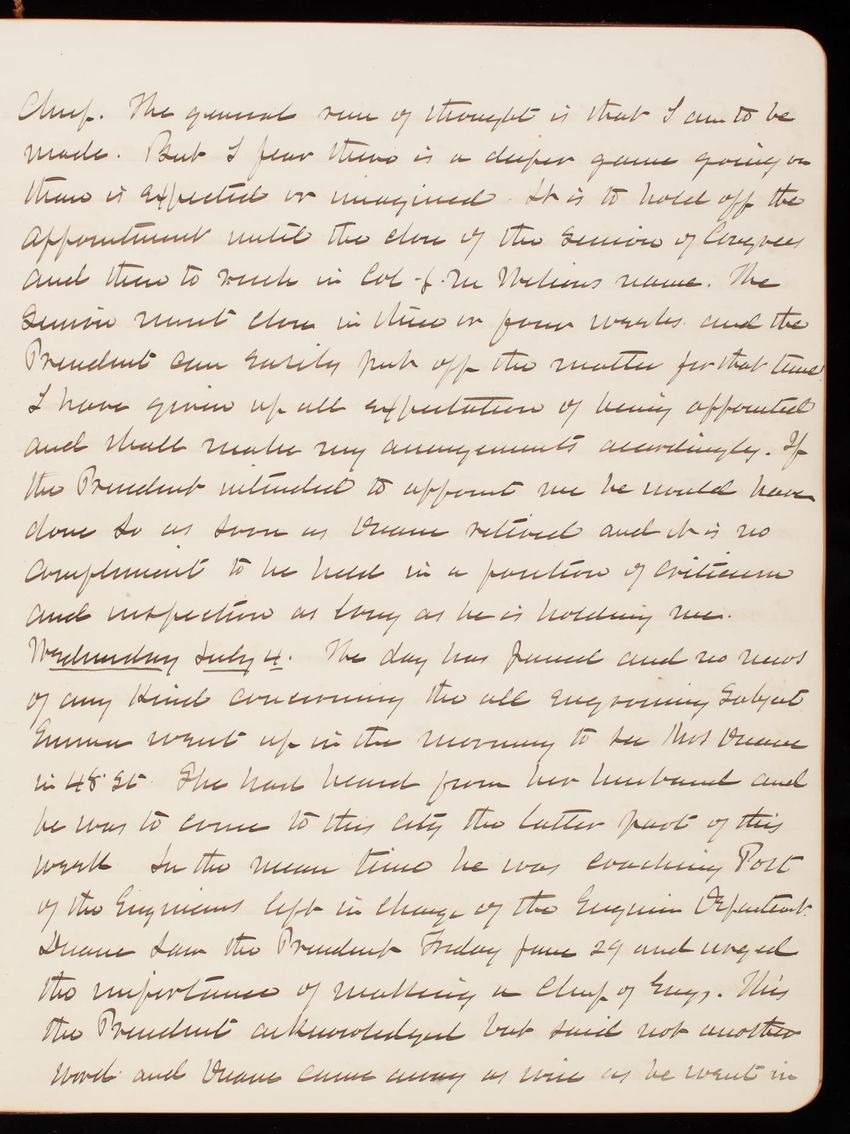 Chief. The general run of thought is that I am to be
made. But I fear there is a deeper game going on
than is expected or imagined. It is to hold off the
appointment until the close of the Session of Congress
and then to rush in Col. J. M. Wilsons name. The
Session must close in three or four weeks and the
President can easily put off the matter for that time.
I have given up all expectation of being appointed
and shall make my arrangements accordingly. If
the President intended to appoint me he would have
done so as soon as Duane retired and it is no
compliment to be held in a position of criticism
and inspection as long as he is holding me.
Wednesday July 4. The day has passed and no news
of any kind concerning the all engrossing subject
Emma went up in the morning to see Mrs Duane
in 48 St. She had heard from her husband and
he was to come to this city the latter part of this
week In the mean time he was coaching Post
of the Engineers left in charge of the Engineer Department.
Duane saw the President Friday June 29 and urged
the importance of making a Chief of Engs. This
the President acknowledged but said not another
word and Duane came away as wise as he went in